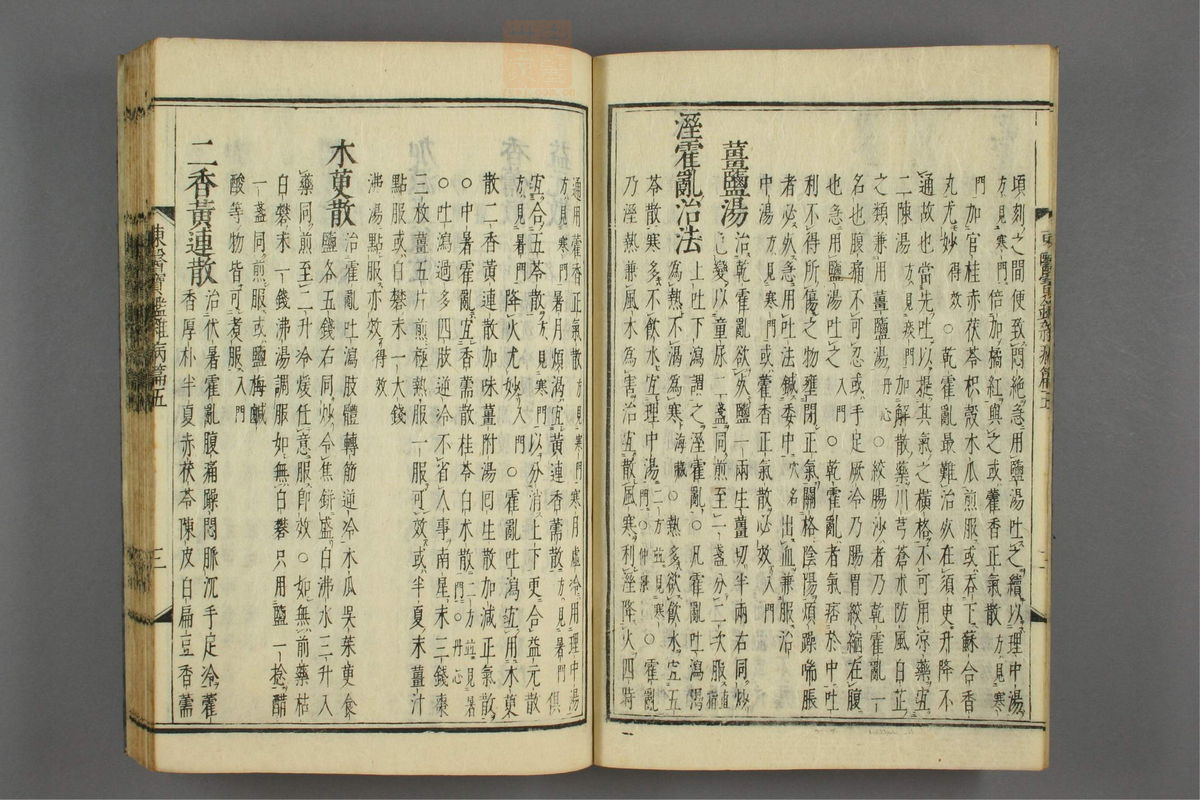 頃刻之間便致悶絶急用鹽湯吐之續以理中湯
方見寒門倍加橘紅與之或藿香正氣散方見寒
門加官桂赤茯苓枳殼木瓜煎服或呑下蘇合香
丸尤妙得效○乾霍亂最難治死在須臾升降不
通故也當先吐以提其氣之橫格不可用涼藥宜
二陳湯方見寒門加解散藥川芎蒼朮防風白芷
之類兼用薑鹽湯丹心○絞腸沙者乃乾霍亂一
名也腹痛不可忍或手足厥冷乃腸胃絞縮在腹
也急用鹽湯吐之入門○乾霍亂者氣痞於中吐
利不得所傷之物壅閉正氣關格陰陽煩躁喘脹
者必死急用吐法鍼委中穴名出血兼服治
中湯方見寒門或藿香正氣散必效入門
薑鹽湯治乾霍亂欲死鹽一兩生薑切半兩右同炒
色變以童尿二盞同煎至一盞分二次服直指
溼霍亂治法上吐下瀉謂之溼霍亂○凡霍亂吐瀉渴
為熱不渴為寒海藏○熱多欲飮水宜五
苓散寒多不飮水宜理中湯二方並見寒門○仲景○霍亂
乃溼熱兼風木為害治宜散風寒利溼降火四時
東醫寶鑑雜病篇五
通用藿香正氣散方見寒門寒月虛冷用理中湯
方見寒門暑月煩渴宜黃連香薷散方見暑門俱
宜合五苓散方見寒門以分消上下更合益元散
方見暑門降火尤妙入門○霍亂吐瀉宜用木萸
散二香黃連散加味薑附湯回生散加減正氣散
○中暑霍亂宜香薷散桂苓白朮散二方並見暑門○丹心
○吐瀉過多四肢逆冷不省人事南星末三錢棗
三枚薑五片煎極熱服一服可效或半夏末薑汁
點服或白礬末一大錢
沸湯點服亦效得效
木萸散治霍亂吐瀉肢體轉筋逆冷木瓜吳茱萸食
鹽各五錢右同炒令焦甁盛白沸水三升入
藥同煎至二升冷煖任意服卽效○如無前藥枯
白礬末一錢沸湯調服如無白礬只用鹽一捻醋
一盞同煎服或鹽梅鹹
酸等物皆可煮服入門
二香黃連散治伏暑霍亂腹痛躁悶脈沉手足冷藿
香厚朴半夏赤茯苓陳皮白扁豆香薷
東醫寶鑑雜病篇五
三